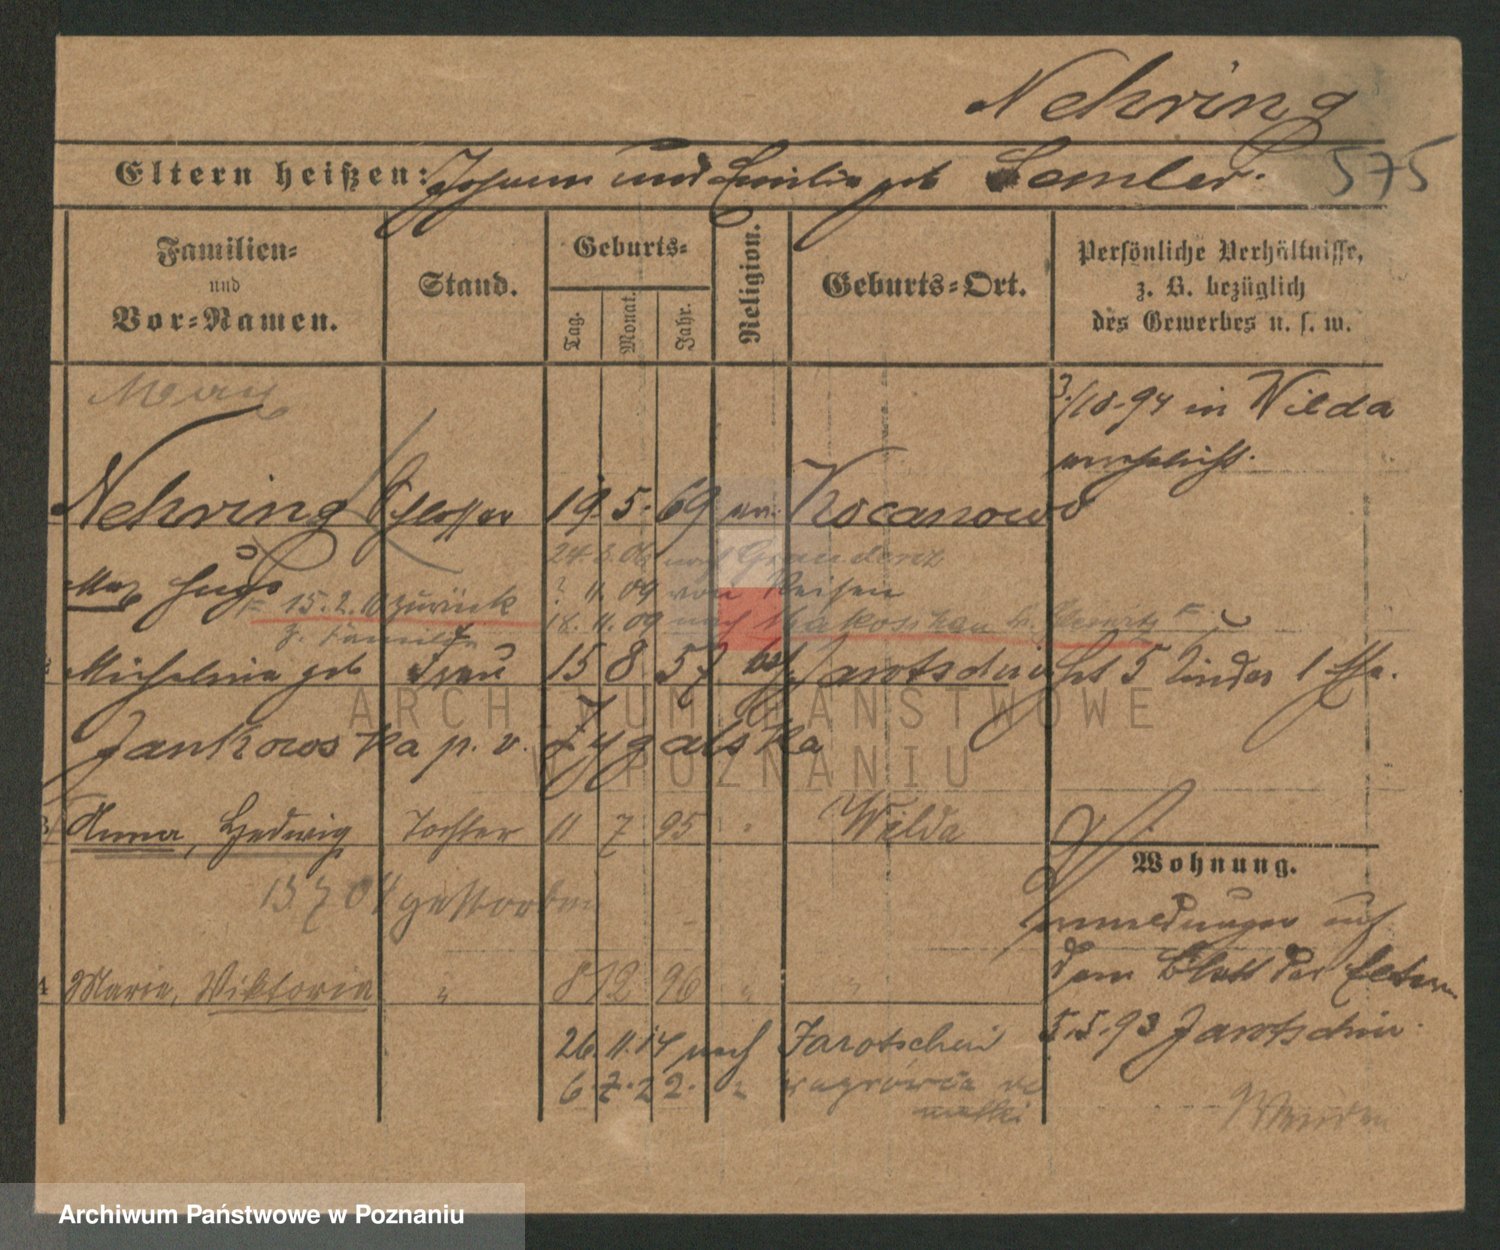 Nehring
Eltern heißen: Johann und Emilie geb Semler. 575
Familien- und Vor-Namen.
Stand.
Geburts-
Tag.
Monat.
Jahr.
Religion.
Geburts-Ort.
Persönliche Verhältnisse,
z. B. bezüglich
des Gewerbes u. s. w.
3/10.94 in Wilda
Nehring Schlosser 19. 5. 69 ev. Kocanowo
24. 3. 06 nach Graudenz
Max Hugo ? 11. 09 von Reisen
= 15. 2. 10 zurück 18. 11. 09 nach
z. Familie
Michalina geb Frau 15 8 57 Jarotschin hat 5 Kinder 1 Ehe.
Jankowska p. v. Zygalska
3 Anna, Hedwig Tochter 11 7 95 " Wilda
Wohnung.
13. 7 04 gestorben
Anmeldungen auf
dem Blatt der Eltern
4 Marie, Viktoria " 8 12 96 " "
5.5.93 Jarotschin.
26. 11. 14 nach Jarotschin
6. 7. 22. "
Wenden
ARCHIWUM PAŃSTWOWE
W POZNANIU
Archiwum Państwowe w Poznaniu